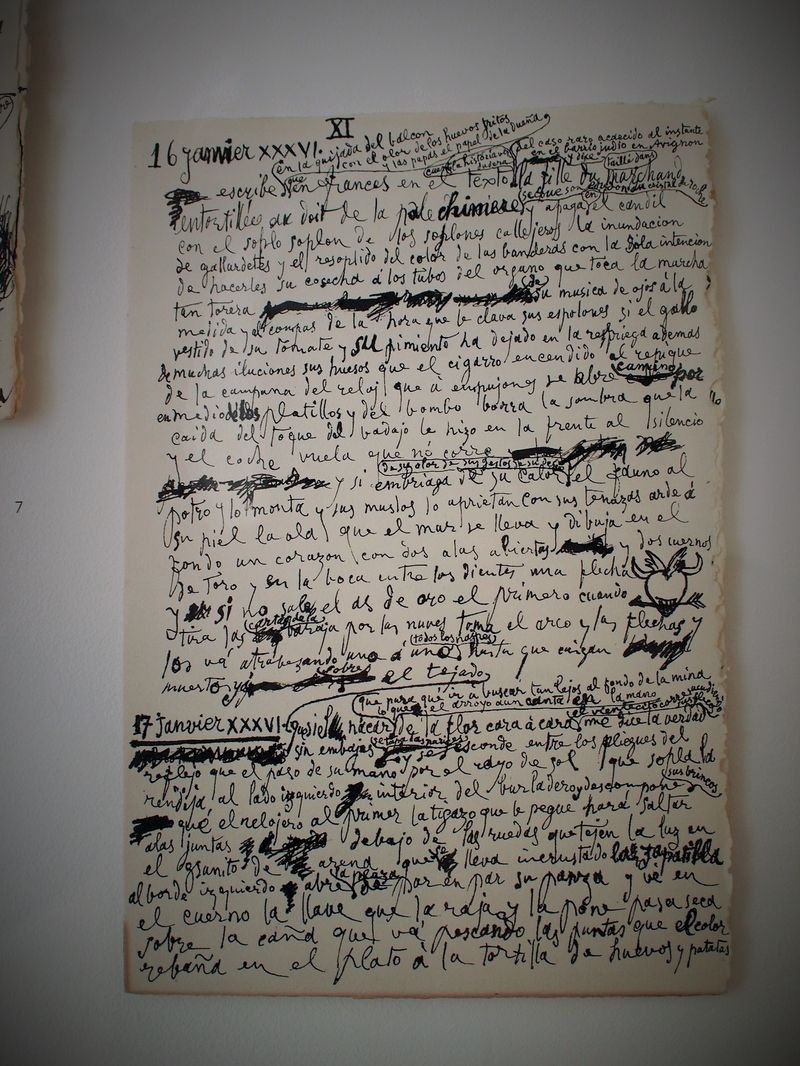 XI
16 janvier XXXVI.
en la quijada del balcon
con el olor de los huevos fritos
y las papas el papel de la dueña
del caso raro acaecido al instante
en el barrio judio en Avignon
y dice
que
escribe en frances en el texto la fille du marchand
entortillée au doit de la pale chimere y apaga el candil
con el soplo soplon de los soplones callejeros la inundacion
de gallardetes y el resoplido del color de las banderas con la sola intencion
de hacerles su cosecha á los tubos del organo que toca la marcha
tan torera de su musica de ojos á la
medida y el compas de la hora que le clava sus espolones si el gallo
vestido de su tomate y su pimiento ha dejado en la refriega ademas
de muchas iluciones sus huesos que el cigarro encendido al repique
de la campana del reloj que á empujones se abre camino por
en medio de los platillos y del bombo borra la sombra que la
caida del toque del badajo le hizo en la frente al silencio
y el coche vuela que no corre
de su olor de sus gestos
y si embriaga de su calor el fauno al
potro y lo monta y sus muslos lo aprietan con sus tenazas arde á
su piel la ola que el mar se lleva y dibuja en el
fondo un corazon con dos alas abiertas y dos cuernos
de toro y en la boca entre los dientes una flecha
y si no sale el as de oro el primero cuando
tira las cartas de la baraja por las nubes toma el arco y las flechas y
los vá atrabezando uno á uno todos los naipes hasta que caigan
muertos ya sobre el tejado
que para que ir a buscar tan lejos al fondo de la mina
lo que el arroyo aun canta en la mano
17 Janvier XXXVI. que si el nacar de la flor cara á cara me dice la verdad
sin embajes y se esconde entre los pliegues del
reflejo que el paso de su mano por el rayo de sol que sopla la
rendija al lado izquierdo interior del burladero y descompone sus brincos
que el relojero al primer latigazo que le pegue para saltar
alas juntas debajo de las ruedas que tejen la luz en
el granito de arena que se lleva incrustado la zapatilla
al borde izquierdo abre la plaza de par en par su panza y ve en
el cuerno la llave que la raja y la pone pasa seca
sobre la caña que vá pescando las puntas que el color
rebaña en el plato á la tortilla de huevos y patatas
7